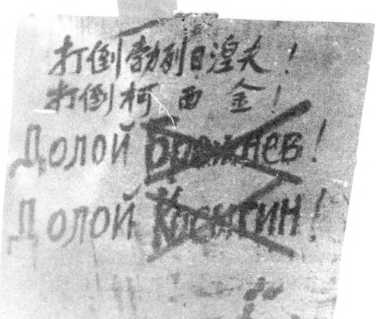 打倒勃列日涅夫！
打倒柯西金！
Долой Брежнев!
Долой Косыгин!